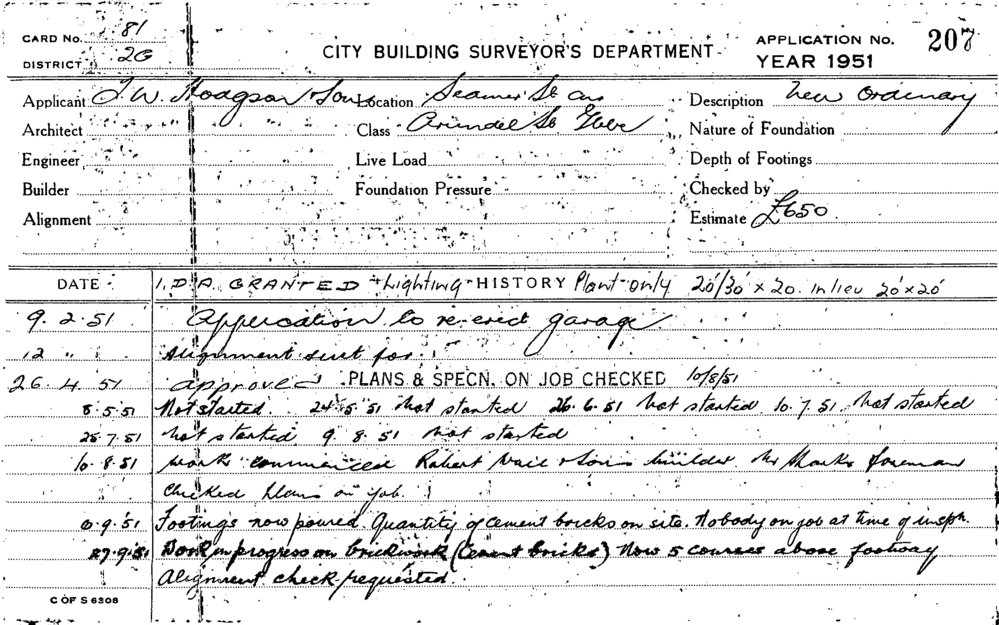 CARD No. 81
DISTRICT 2G
CITY BUILDING SURVEYOR'S DEPARTMENT
APPLICATION No. 207
YEAR 1951
Applicant J. W. Hodgson & Sons Location Seamer St cnr Description New Ordinary
Architect " " " " Class Arundel St Glebe Nature of Foundation
Engineer Live Load Depth of Footings
Builder Foundation Pressure Checked by
Alignment Estimate £650
DATE I.D.A. GRANTED + Lighting HISTORY Plant only 20'/30' x 20. in lieu 20' x 20'
9.2.51 Application to re-erect garage
12 " Alignment sent for
26.4.51 approved PLANS & SPECN. ON JOB CHECKED 10/8/51
8.5.51 Not started. 24.5.51 not started 26.6.51 not started 10.7.51. not started
25.7.51 not started 9.8.51 not started
10.8.51 work commenced Robert Vail & Sons builder. Mr Marks foreman
checked plans on job.
Footings now poured. Quantity of cement bricks on site. Nobody on job at time of inspn.
27.9.51 Work in progress on brickwork (cement bricks) Now 5 courses above footway
Alignment check requested.
C OF S 6308